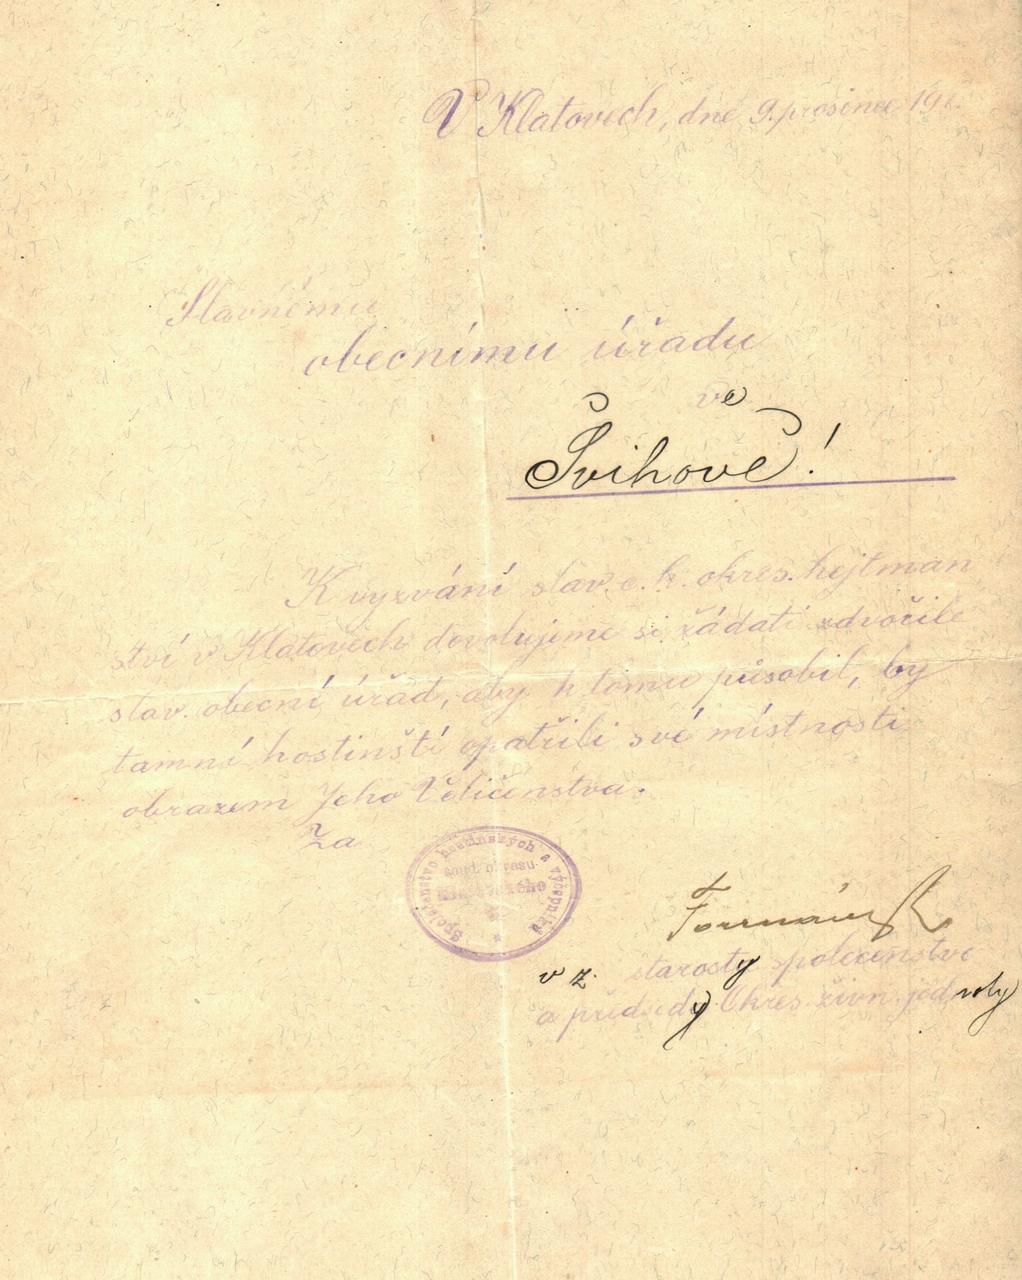 V Klatovech, dne 9. prosince 19
Slavnému
obecnímu úřadu
ve
Švihově!
K vyzvání slav. c. k. okres. hejtman
ství v Klatovech dovolujeme si žádati zdvořile
slav. obecní úřad, aby k tomu působil, by
tamní hostinští opatřili své místnosti
obrazem Jeho Veličenstva.
Za
Společenstvo hostinských a výčepníků
soud. okresu
Klatovského
v z. starosty společenstva
a předsedy Okres. živn. jednoty